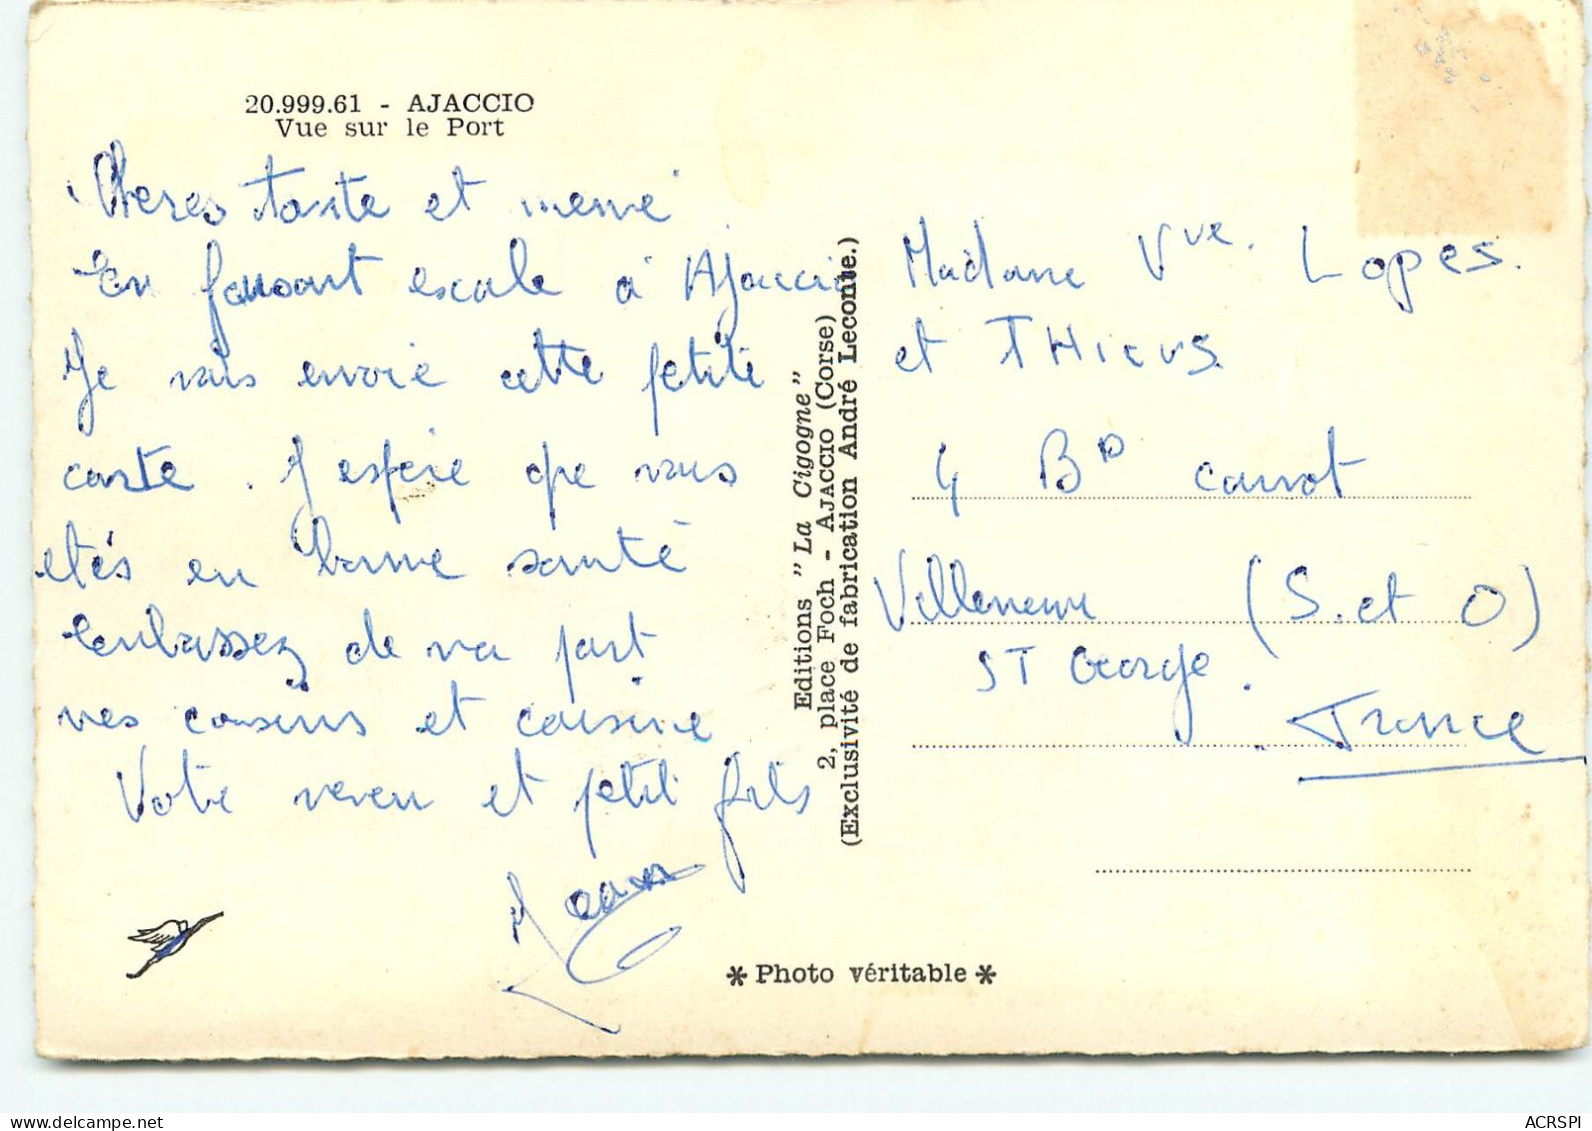 20.999.61 - AJACCIO
Vue sur le Port
Cheres tante et mémé
En faisant escale à Ajaccio
Je vous envoie cette petite
carte. J espére que vous
etés en bonne santé
Embrassez de ma part
mes cousins et cousine
Votre neveu et petit fils
Jean
Editions "La Cigogne"
2, place Foch - AJACCIO (Corse)
(Exclusivité de fabrication André Leconte.)
Madame Vve. Lopes.
et
4 BD carnot
Villeneuve (S. et O)
ST George.
France
* Photo véritable *
https://www.delcampe.net
ACRSPI